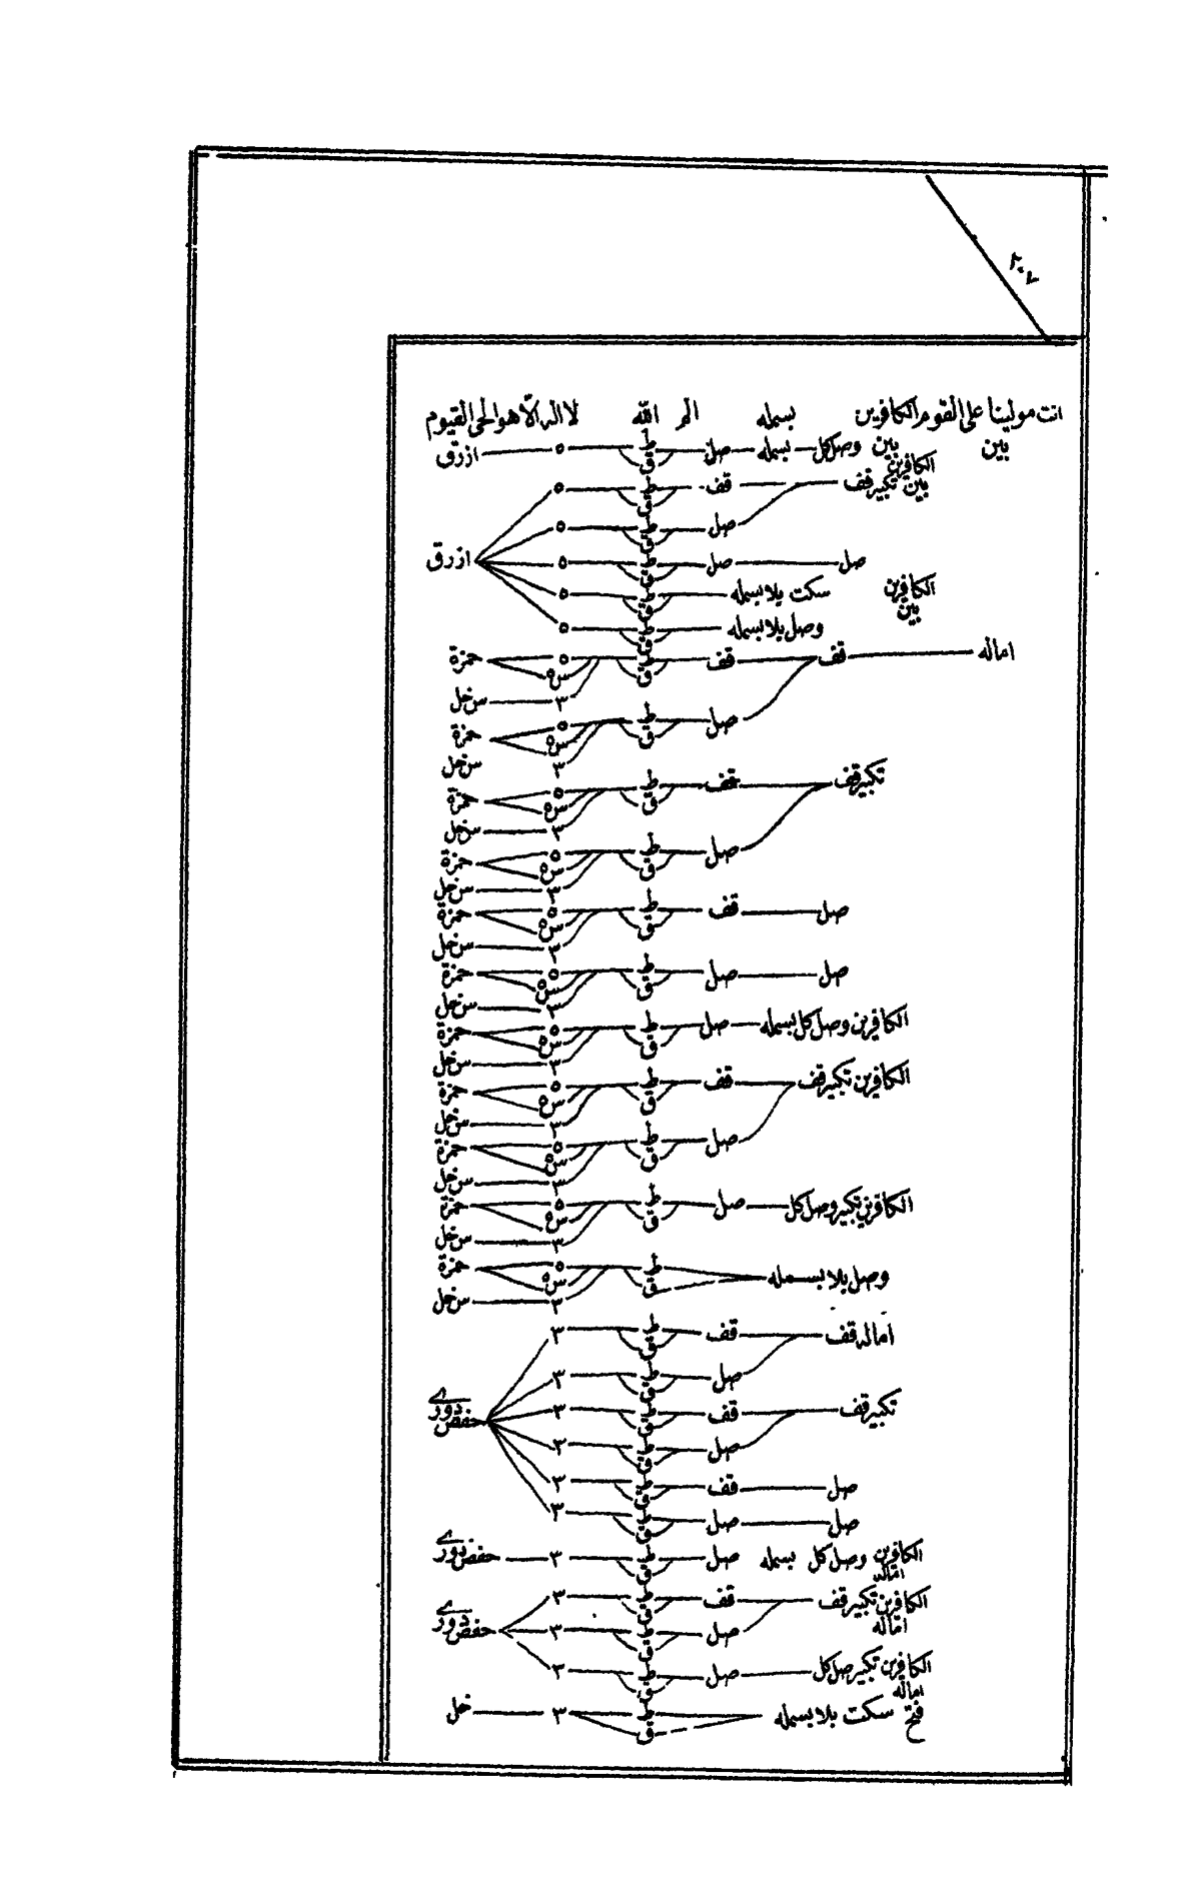 ٢٠٧
انت مولينا على القوم الكافرين بسمله الم الله لا اله الا هو الحي القيوم
بين بين وصل كل بسمله صل ط ق ٥ ازرق
الكافرين
بين تكبير قف قف ط ق ٥
صل ط ق ٥
صل صل ط ق ٥ ازرق
الكافرين بين سكت بلا بسمله ط ق ٥
وصل بلا بسمله ط ق ٥
اماله قف قف ط ق ٥ س٥ حمزة
٣ س خل
صل ط ق ٥ س٥ حمزة
٣ س خل
تكبير قف قف ط ق ٥ س٥ حمزة
٣ س خل
صل ط ق ٥ س٥ حمزة
٣ س خل
صل قف ط ق ٥ س٥ حمزة
٣ س خل
صل صل ط ق ٥ س٥ حمزة
٣ س خل
الكافرين وصل كل بسمله صل ط ق ٥ س٥ حمزة
٣ س خل
الكافرين تكبير قف قف ط ق ٥ س٥ حمزة
٣ س خل
صل ط ق ٥ س٥ حمزة
٣ س خل
الكافرين تكبير وصل كل صل ط ق ٥ س٥ حمزة
٣ س خل
وصل بلا بسمله ط ق ٥ س٥ حمزة
٣ س خل
اماله قف قف ط ق ٣
صل ط ق ٣
تكبير قف قف ط ق ٣ حفص دورے
صل ط ق ٣
صل قف ط ق ٣
صل صل ط ق ٣
الكافرين وصل كل بسمله صل ط ق ٣ حفص دورے
اماله
الكافرين تكبير قف قف ط ق ٣
اماله صل ط ق ٣ حفص دورے
الكافرين تكبير صل كل صل ط ق ٣
اماله
فتح سكت بلا بسمله ط ق ٣ خل